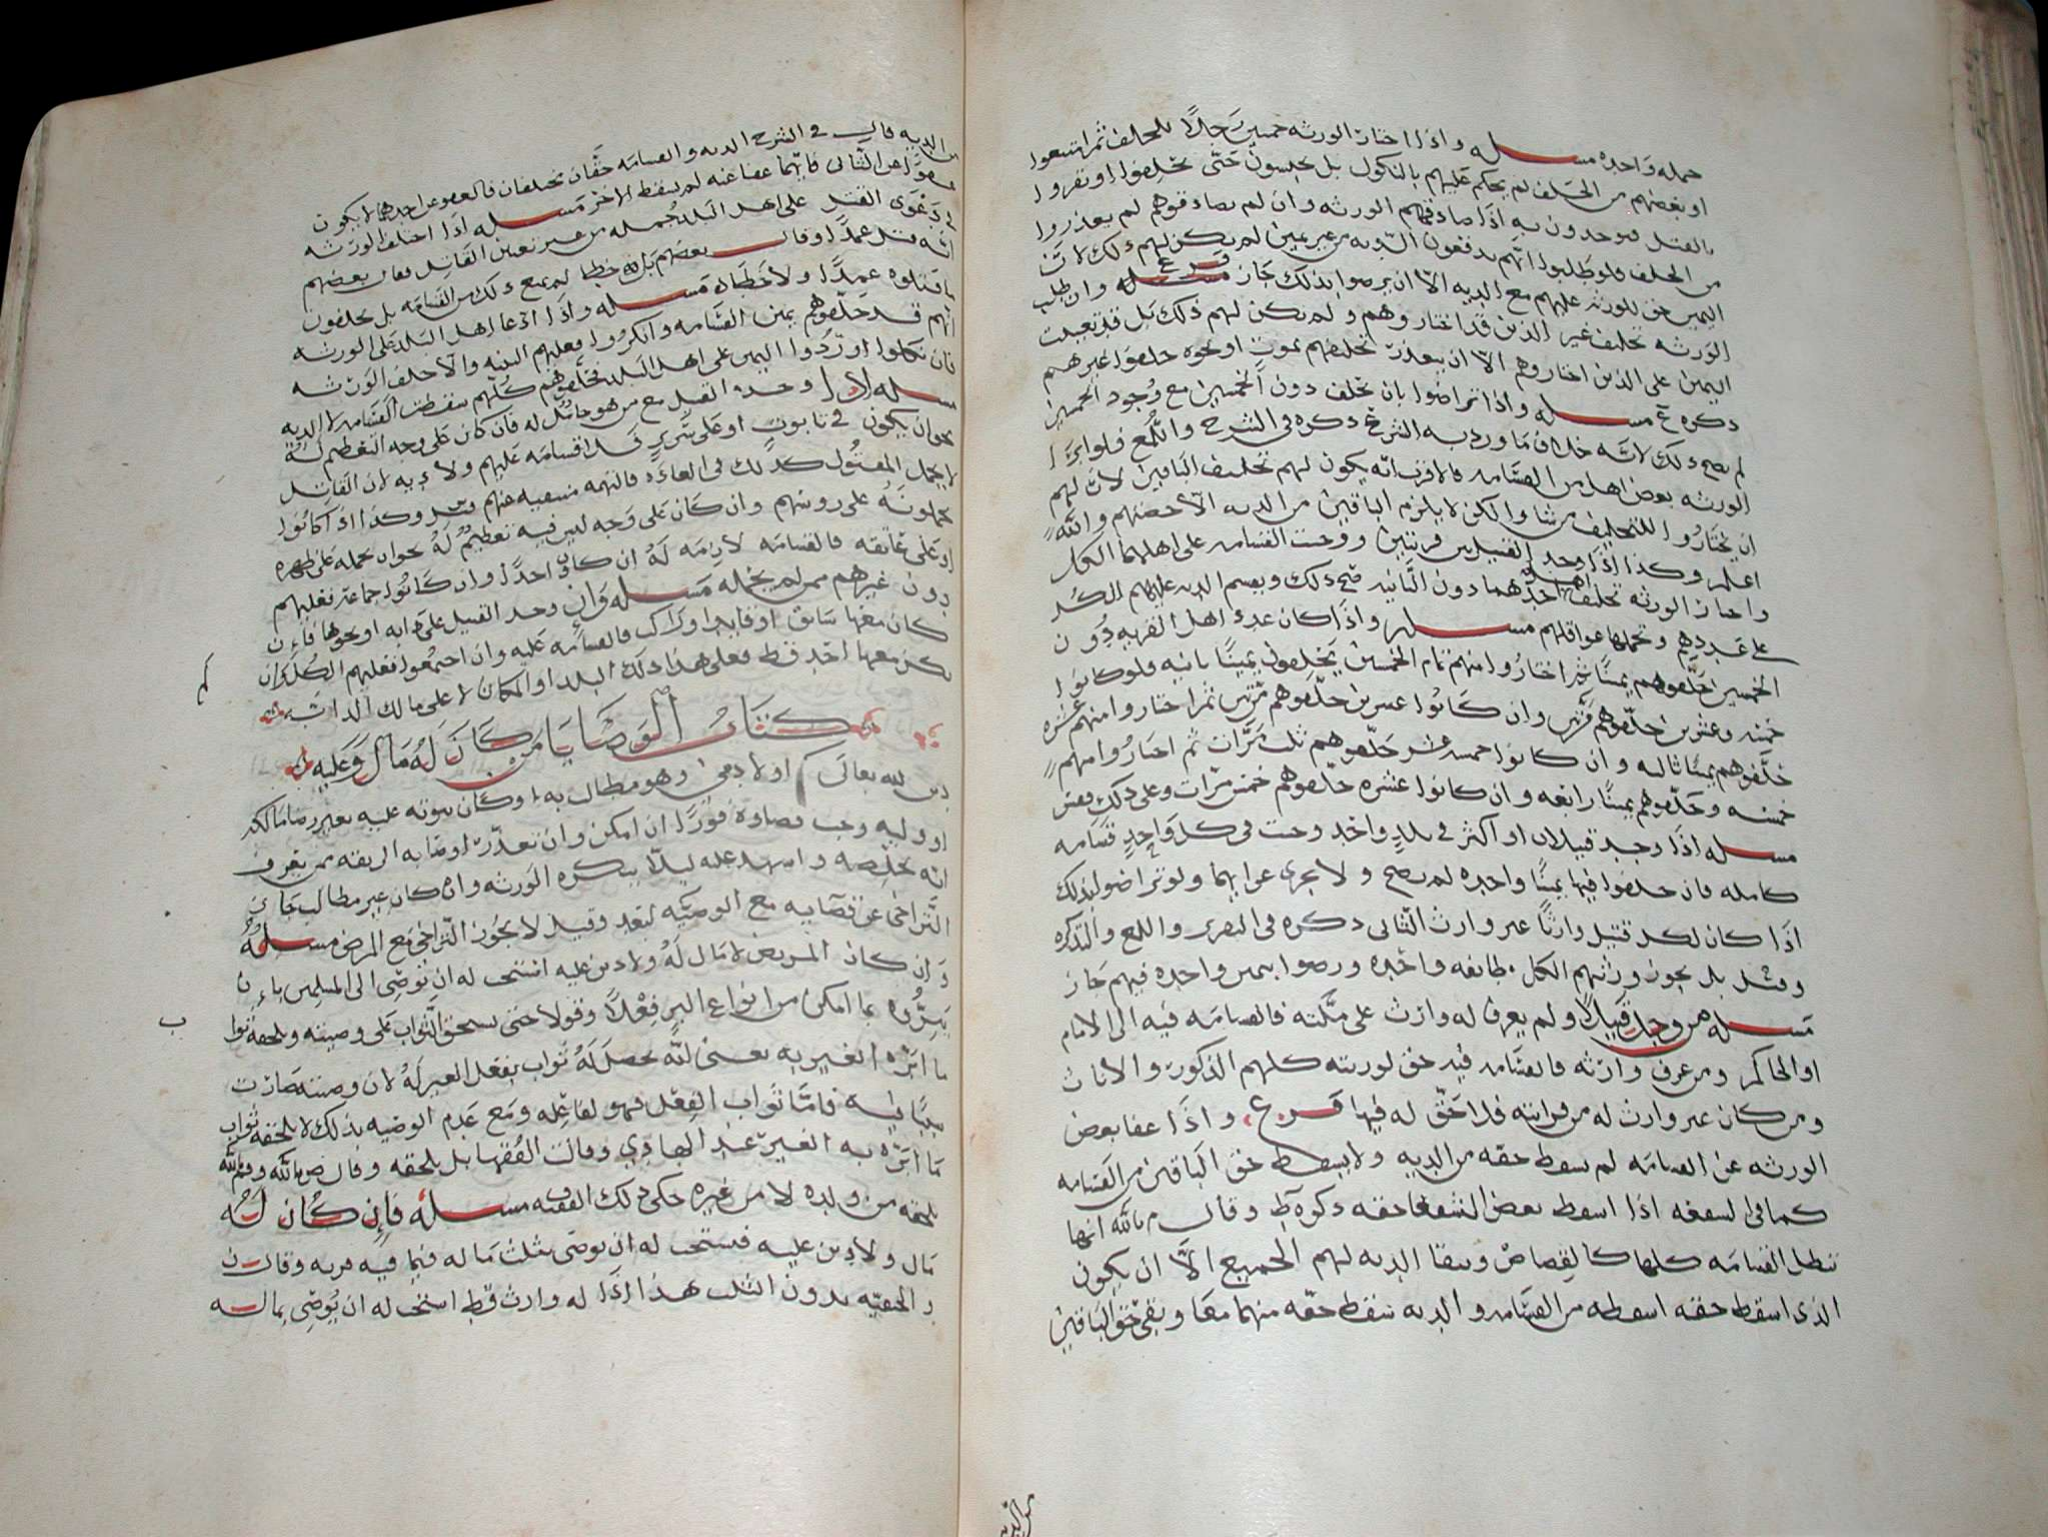 جمله واحده مسله واذا اختار الورثه خمسين رجلا للحلف ثم امتنعوا
او بعضهم من الحلف لم يحكم عليهم بالنكول بل يحبسون حتى يحلفوا او يقروا
بالقتل فيوخدون به اذا صادقهم الورثه وان لم يصادقوهم لم يعذروا
من الحلف فلو طلبوا انهم يدفعون الديه من غير يمين لم يكن لهم ذلك لان
اليمين حق للورثه عليهم مع الديه الا ان يرضوا بذلك جاز فرع مسله وان طلب
الورثه تحليف غير الذين قد اختاروهم ولم يكن لهم ذلك بل قد تعينت
اليمين على الذين اختاروهم الا ان يتعذر تحليفهم بموت او نحوه حلفوا غيرهم
ذكره ع مسله واذا تراضوا بان يحلف دون الخمسين مع وجود الخمسين
لم يصح ذلك لانه خلاف ما ورد به الشرع ذكره في الشرح واللمع فلو ابرا
الورثه بعض اهل من القسامه فالاقرب انه يكون لهم تحليف الباقين لان لهم
ان يختاروا للتحليف من شاوا لكن لا يلزم الباقين من الديه الا حصتهم والله
اعلم وكذا اذا وجد القتيل بين قريتين ووجبت القسامه على اهلهما الكل
واختار الورثه تحليف اهل احدهما دون الثانيه صح ذلك ويقسم الديه عليهم الكل
على عددهم وتحملها عواقلهم مسله واذا كان عدد اهل القريه دون
الخمسين حلفوهم يمينا ثم اختاروا منهم تمام الخمسين يحلفون يمينا ثانيه فلو كانوا
خمسه وعشرين حلفوهم مرتين وان كانوا عشرين حلفوهم مرتين ثم اختاروا منهم عشره
حلفوهم يمينا ثالثه وان كانوا خمسه عشر حلفوهم ثلث مرات ثم اختاروا منهم
خمسه وحلفوهم يمينا رابعه وان كانوا عشره حلفوهم خمس مرات وعلى ذلك فقس
مسله اذا وجد قتيلان او اكثر في بلد واحد وجبت في كل واحد قسامه
كامله فان حلفوا فيها يمينا واحده لم يصح ولا يجزي عن ايهما ولو تراضوا بذلك
اذا كان لكل قتيل وارثا غير وارث الثاني ذكره في التقرير واللمع والتذكره
وقيل بل يجوز وراثهم الكل طائفه واحده ورضوا بيمين واحده فيهم جاز
مسله من وجد قتيلا ولم يعرف له وارث على ملكته فالقسامه فيه الى الامام
او الحاكم ومن عرف وارثه فالقسامه فيه حق لورثته كلهم الذكور والاناث
ومن كان غير وارث له من قرابته فلا حق له فيها فرع واذا عفا بعض
الورثه عن القسامه لم يسقط حقه من الديه ولا يسقط حق الباقين من القسامه
كما في الشفعه اذا اسقط بعض الشفعا حقه ذكره ط وقال م بالله انها
تبطل القسامه كلها كالقصاص وتبقا الديه لهم الجميع الا ان يكون
الذي اسقط حقه اسقطه من القسامه والديه سقط حقه منهما معا وبقي حق الباقين
من الديه
من الديه قال في الشرح الديه والقسامه حقان يختلفان فالعفو عن احدهما لا يكون
عفوا عن الثاني فايهما عفا عنه لم يسقط الاخر مسله اذا اختلف الورثه
في دعوى القتل على اهل البلد جمله من غير تعيين القاتل فقال بعضهم
انه قتل عمدا وقال بعضهم بل خطا لم يمنع ذلك من القسامه بل يحلفون
ما قتلوه عمدا ولا خطا مسله واذا ادعا اهل البلد على الورثه
انهم قد حلفوهم يمين القسامه وانكروا فعليهم البينه والا حلف الورثه
فان نكلوا او ردوا اليمين على اهل البلد فحلفوهم كلهم سقطت القسامه لا الديه
مسله اذا وجد القتيل مع من هو حامل له فان كان على وجه التعظيم له
نحو ان يكون في تابوت او على سرير فلا قسامه عليهم ولا ديه لان القاتل
لا يحمل المقتول كذلك في العاده فالتهمه منتفيه عنهم وكذا اذا كانوا
يحملونه على روسهم وان كان على وجه ليس فيه تعظيم له نحو ان يحمله على ظهره
او على عاتقه فالقسامه لازمه له ان كان واحدا وان كانوا جماعه فعليهم
دون غيرهم ممن لم يحمله مسله وان وجد القتيل على دابه او نحوها فان
كان معها سايق او قايد او راكب فالقسامه عليه وان اجتمعوا فعليهم الكل وان
لم يكن معها احد قط فعلى هذا ذلك البلد او المكان لا على مالك الدابه
كتاب الوصايا من كان له مال وعليه
دين لله تعالى او لادمي وهو مطالب به او كان ثبوته عليه بغير رضا مالكه
او وليه وجب قضاوه فورا ان امكن وان تعذر اوصا به الى ثقه ممن يعرف
انه يخلصه واشهد عليه ليلا ينكره الورثه وان كان غير مطالب جاز
التراخي عن قضايه مع الوصيه لبعد وقيل لا يجوز التراخي مع المرض مسله
وان كان المريض لا مال له ولا دين عليه استحب له ان يوصي الى المسلمين بان
يبروه بما امكن من انواع البر فعلا وقولا حتى يستحق الثواب على وصيته ويلحقه ثواب
ما ابره الغير به يعني انه يحصل له ثواب بفعل الغير له لان وصيته صارت
سببا فيه فاما ثواب الفعل فهو لفاعله ومع عدم الوصيه بذلك لا يلحقه ثواب
ما ابره به الغير عند الهادي وقالت الفقها بل يلحقه وقال ص بالله وم بالله
يلحقه من ولده لا من غيره حكى ذلك الفقيه ف مسله فان كان له
مال ولا دين عليه فيستحب له ان يوصي بثلث ماله فيما فيه قربه وقال ن
والحنفيه بدون الثلث هذا اذا له وارث فقط استحب له ان يوصي بماله